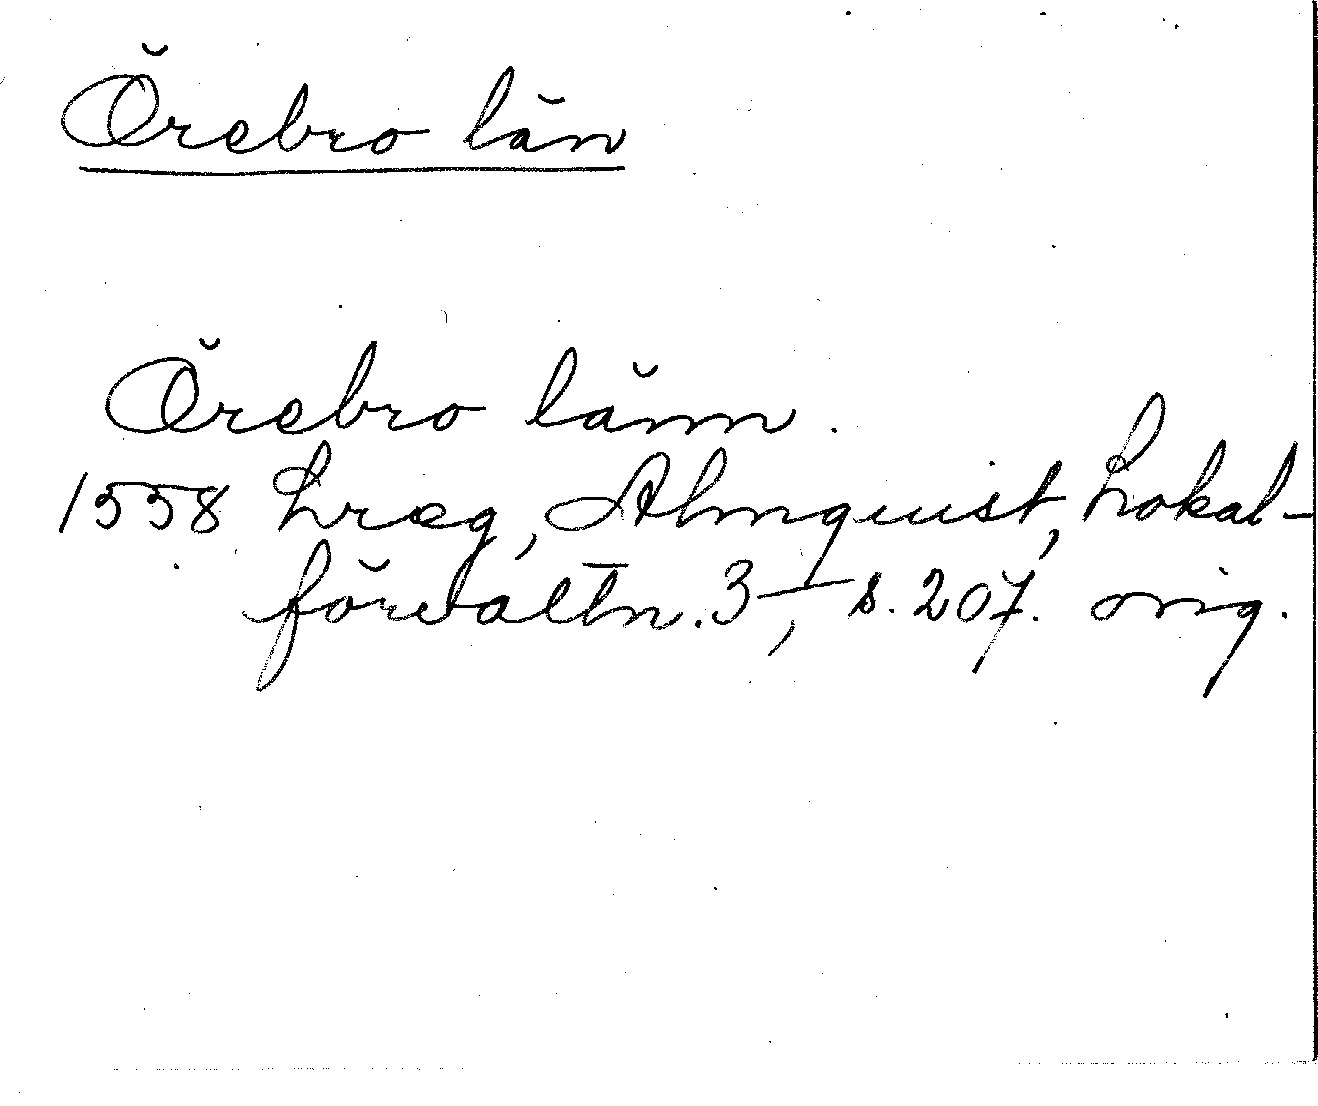 Örebro län
Örebro länn.
1558 Lreg, Almquist, Lokal-
förvaltn. 3, s. 207. orig.